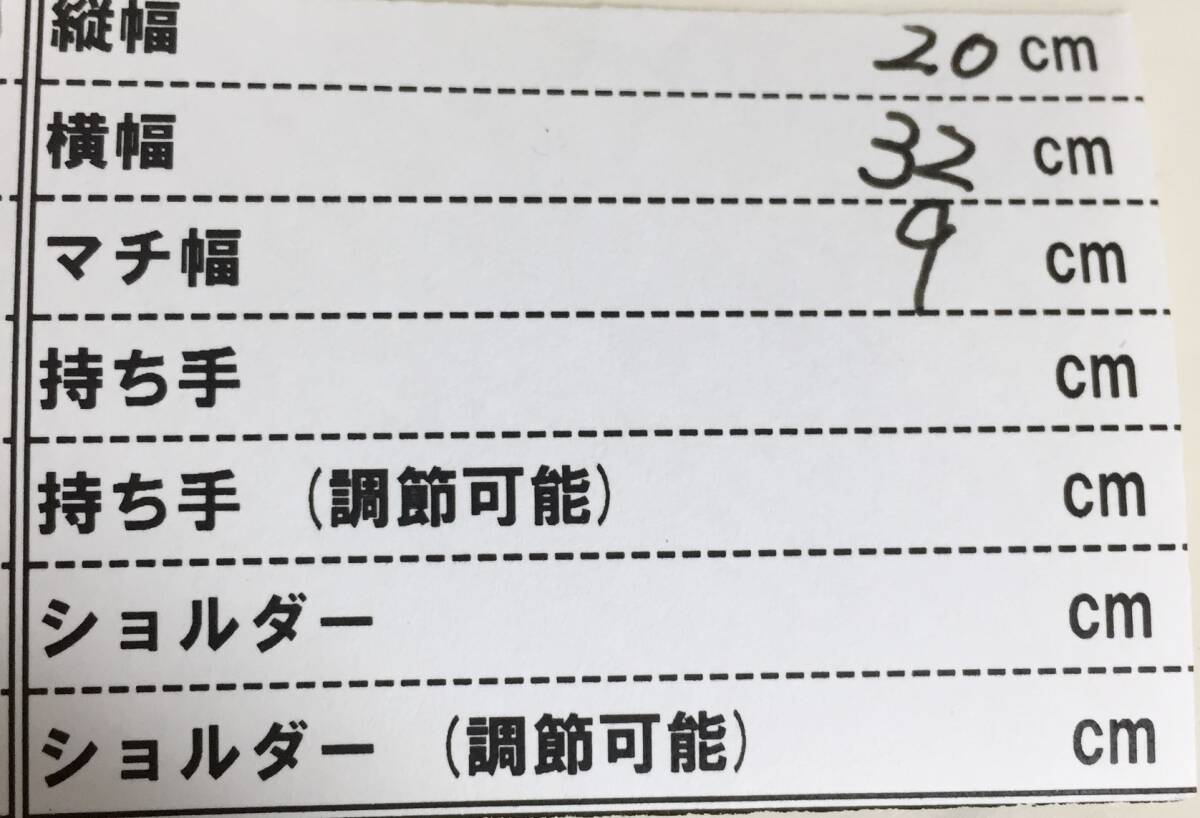 縦幅 20 cm
横幅 32 cm
マチ幅 9 cm
持ち手 cm
持ち手 (調節可能) cm
ショルダー cm
ショルダー (調節可能) cm